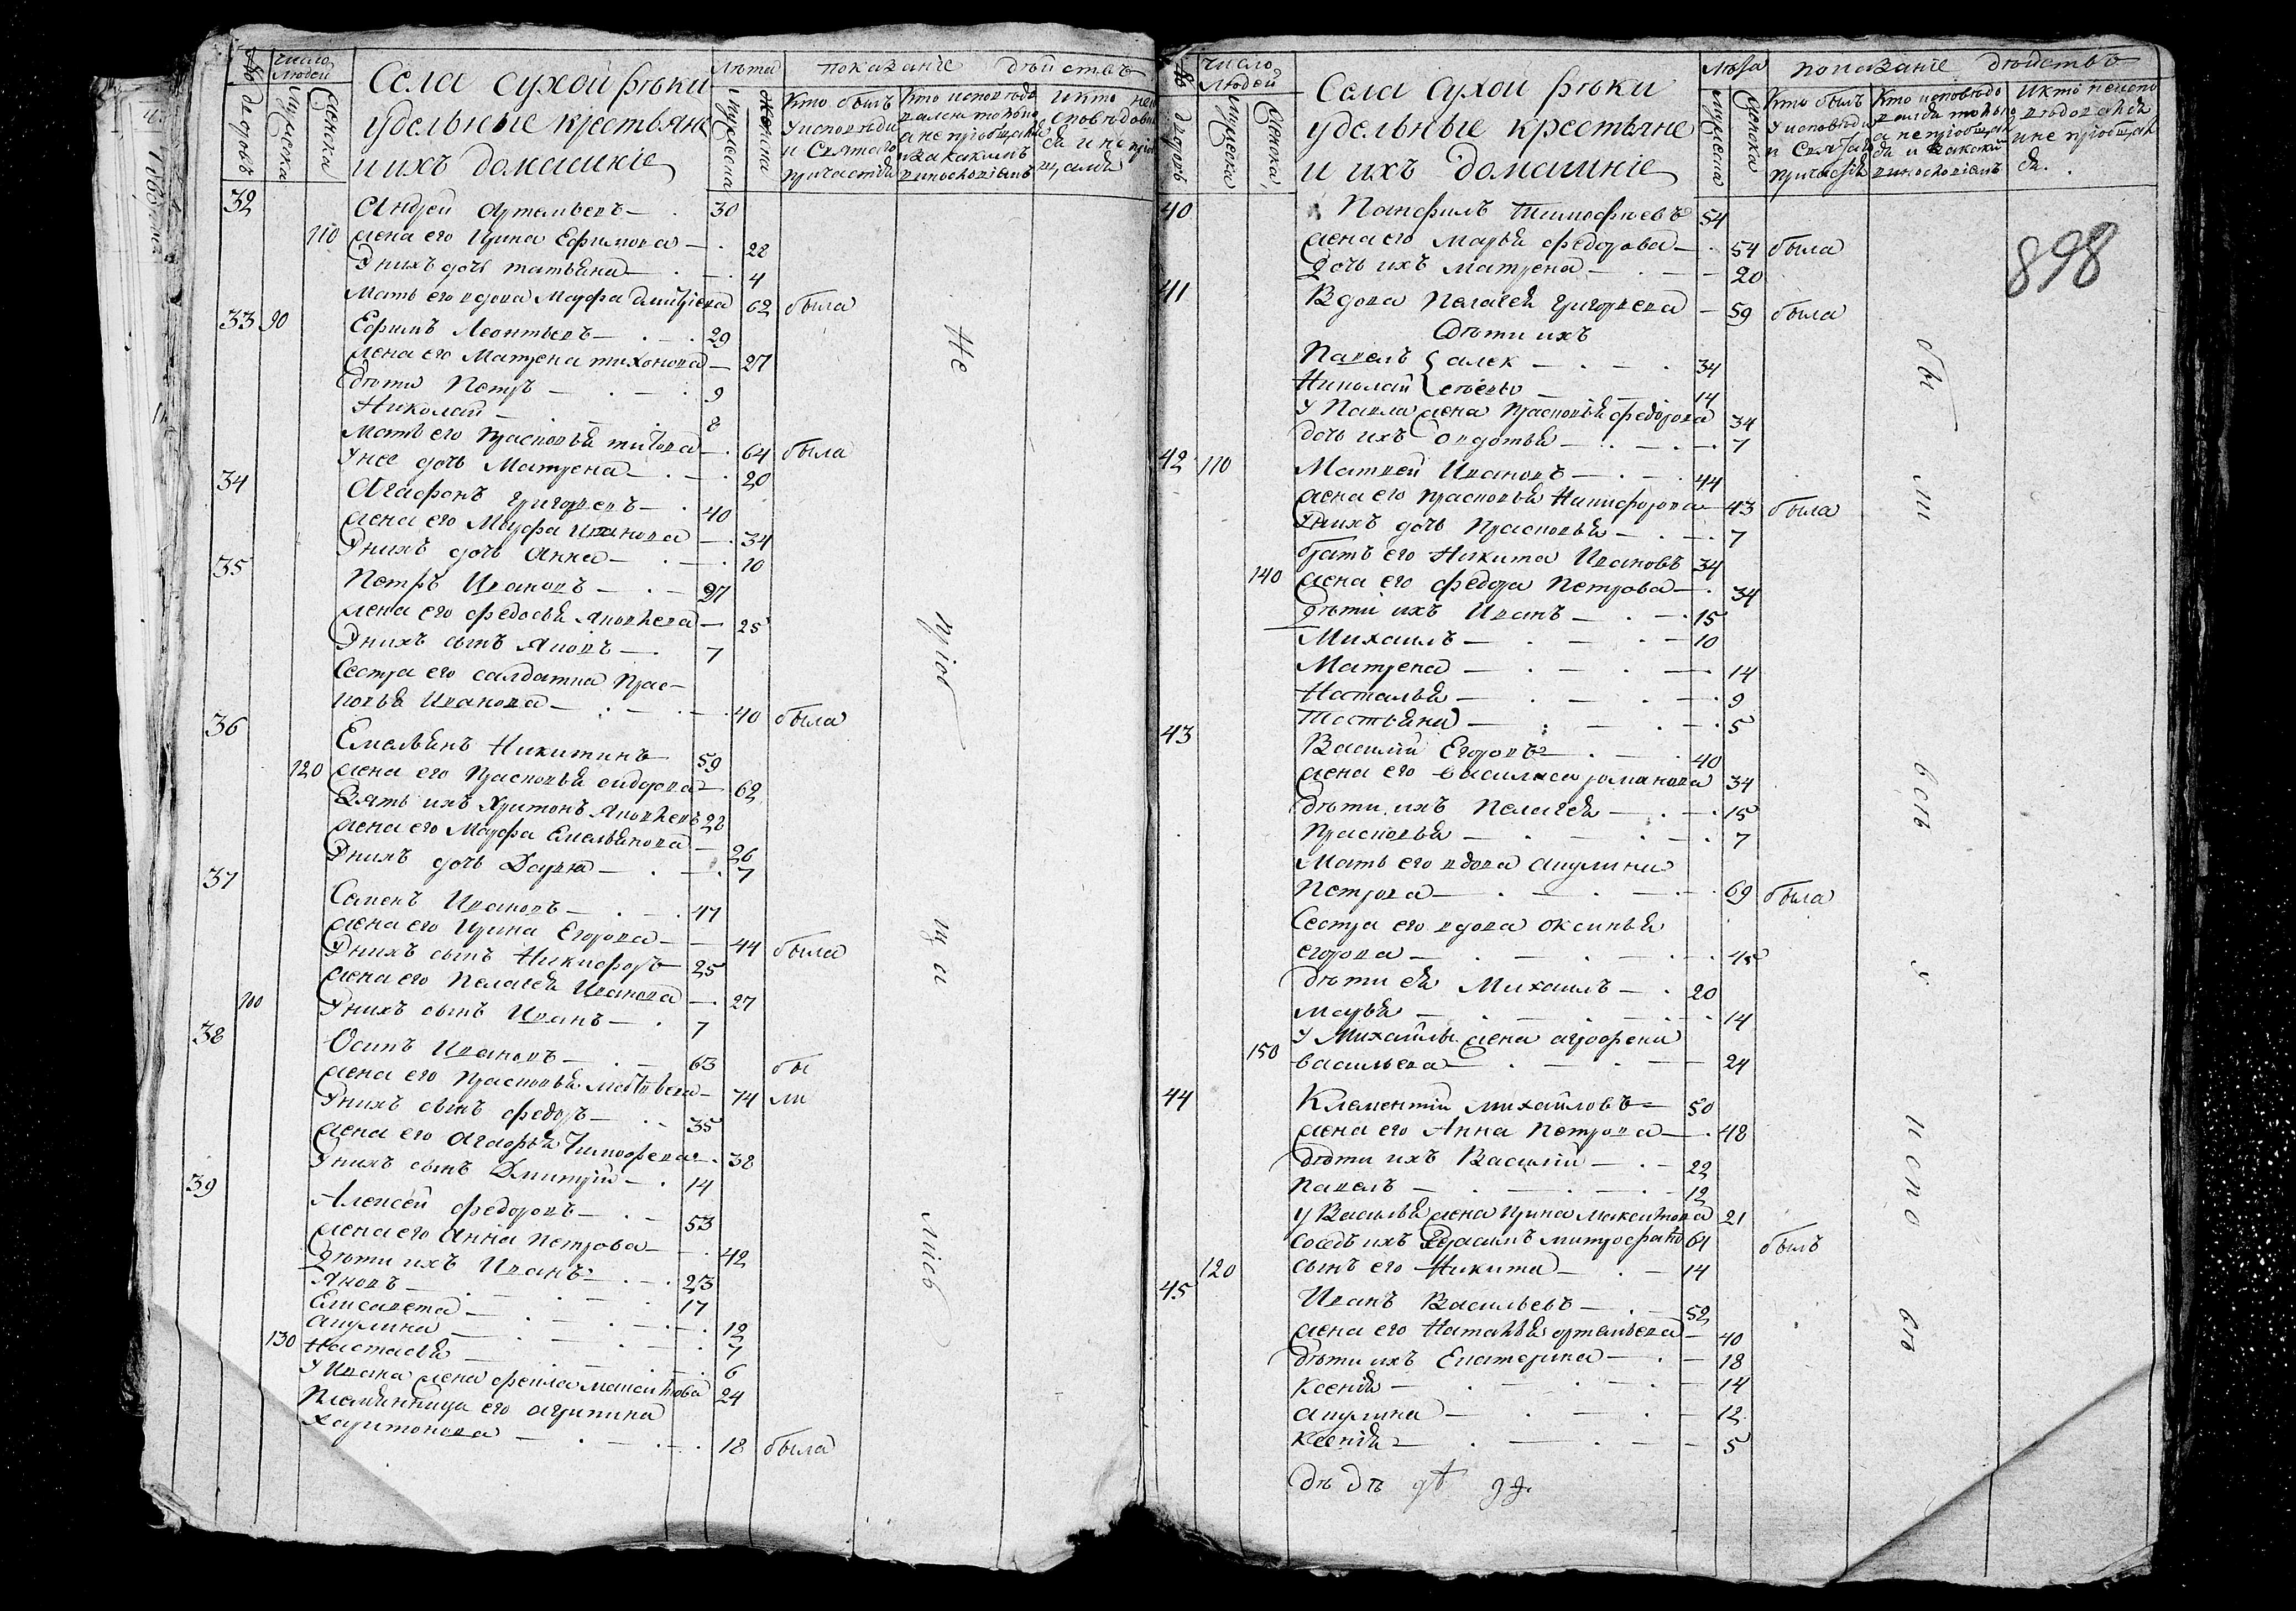 № дворовъ
Число людей
Мужеска
Женска
Села сухой рѣки
удельныя крестьяне
и ихъ домашніе
Лѣта
Мужеска
Женска
показаніе дѣйствъ
Кто былъ
у исповѣди
и Святаго
причастія
32 Андрей Артемьевъ 30
110 жена его Ирина Ефимова 28
У нихъ дочь татьяна 4
Мать его вдова Марфа дмитріева 62 была
33 90 Ефимъ Леонтьевъ 29
жена его Матрена тихонова 27
дѣти Петръ 9
Николай 8
Мать его Прасковья титова 64 была
У нее дочь Матрена 20
34 Агафонъ григорьевъ 40
жена его Марфа Иванова 34
У нихъ дочь Анна 10
35 Петръ Ивановъ 27
жена его федосья яковлева 25
У нихъ сынъ Яковъ 7
Сестра его салдатка Прас-
ковья Иванова 40 была
36 Емельянъ Никитинъ 59
120 жена его Прасковья сидорова 62
Зять ихъ Харитонъ яковлевъ 28
жена его Марфа Емельянова 26
У нихъ дочь Дарья 7
37 Семенъ Ивановъ 47
жена его Ирина Егорова 44 была
У нихъ сынъ Никифоръ 25
жена его Пелагея Иванова 27
100 У нихъ сынъ Иванъ 7
38 Осипъ Ивановъ 63 бы
жена его Прасковья Матвѣева 74 ли
У нихъ сынъ федоръ 35
жена его Агафья Тимофеева 38
У нихъ сынъ Дмитрій 14
39 Алексей федоровъ 53
жена его Анна петрова 42
дѣти ихъ Иванъ 23
Яковъ 17
Елисавета 12
акулина 7
130 Настасья 6
У Ивана жена фекла 24
Племянница его агрипина
Харитонова 18 была
Не
пріоб
ща
лись
№ дворовъ
Число людей
Мужеска
Женска
Села Сухой рѣки
удельныя крестьяне
и ихъ домашніе
Лѣта
Мужеска
Женска
показаніе дѣйствъ
Кто былъ
у исповѣди
и Святаго
причастія
898
40 Панфилъ Тимофѣевъ 54
жена его Марья федорова 54 была
дочь ихъ Матрена 20
41 Вдова Пелагея григорьева 59 была
дѣти ихъ
Павелъ алек 34
Николай сѣевы 14
У Павла жена Прасковья федорова 34
дочь ихъ овдотья 7
42 110 Матвей Ивановъ 44
жена его прасковья Никифорова 43 была
У нихъ дочь Прасковья 7
братъ его Никита Ивановъ 34
140 жена его федора Петрова 34
дѣти ихъ Иванъ 15
Михаилъ 10
Матрена 14
Наталья 9
Татьяна 5
43 Василій Егоровъ 40
жена его василиса романова 34
дѣти ихъ Пелагея 15
Прасковья 7
Мать его вдова акулина
Петрова 69 была
Сестра его вдова оксинья
егорова 45
дѣти ея Михаилъ 20
марья 14
У Михайлы жена агрофена
150 васильева 24
44 Клементій михайловъ 50
жена его Анна петрова 48
дѣти ихъ Василій 22
павелъ 12
у Василья жена Ирина 21
соседъ ихъ Герасимъ митрофановъ 64 былъ
120 сынъ его Никита 14
45 Иванъ Васильевъ 52
жена его Наталья артемьева 40
дѣти ихъ Екатерина 18
ксенія 14
акулина 12
ксенія 5
дѣ дѣ
бы
ли
всѣ
у
испо
вѣ